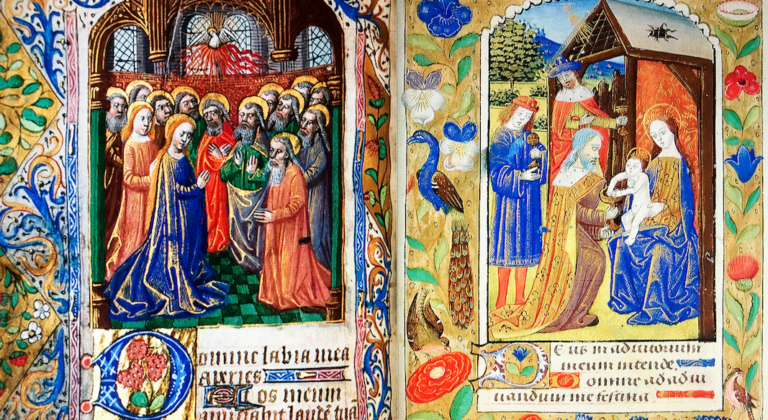 Domine labia mea
aperies
Et os meum
Deus in adiutorium
meum intende
Domine ad adiu
uandum me festina